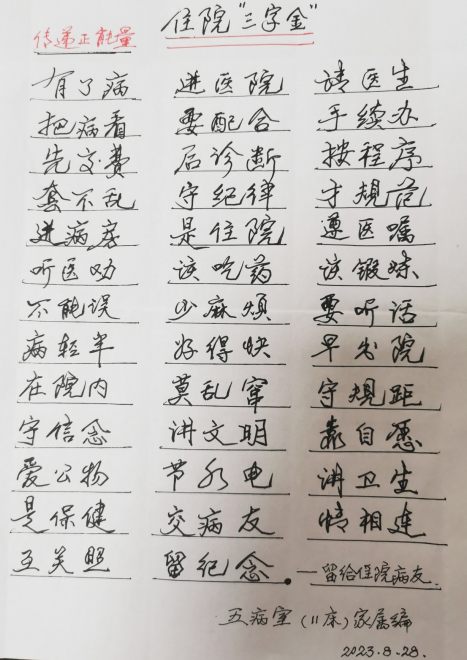 传递正能量 住院"三字金"
有了病 进医院 请医生
把病看 要配合 手续办
先交费 后诊断 按程序
套不乱 守纪律 才规范
进病房 是住院 遵医嘱
听医劝 该吃药 该锻炼
不能误 少麻烦 要听话
病轻半 好得快 早出院
在院内 莫乱窜 守规距
守信念 讲文明 靠自愿
爱公物 节水电 讲卫生
是保健 交病友 情相连
互关照 留纪念。—留给住院病友
五病室(11床)家属编
2023.8.28.